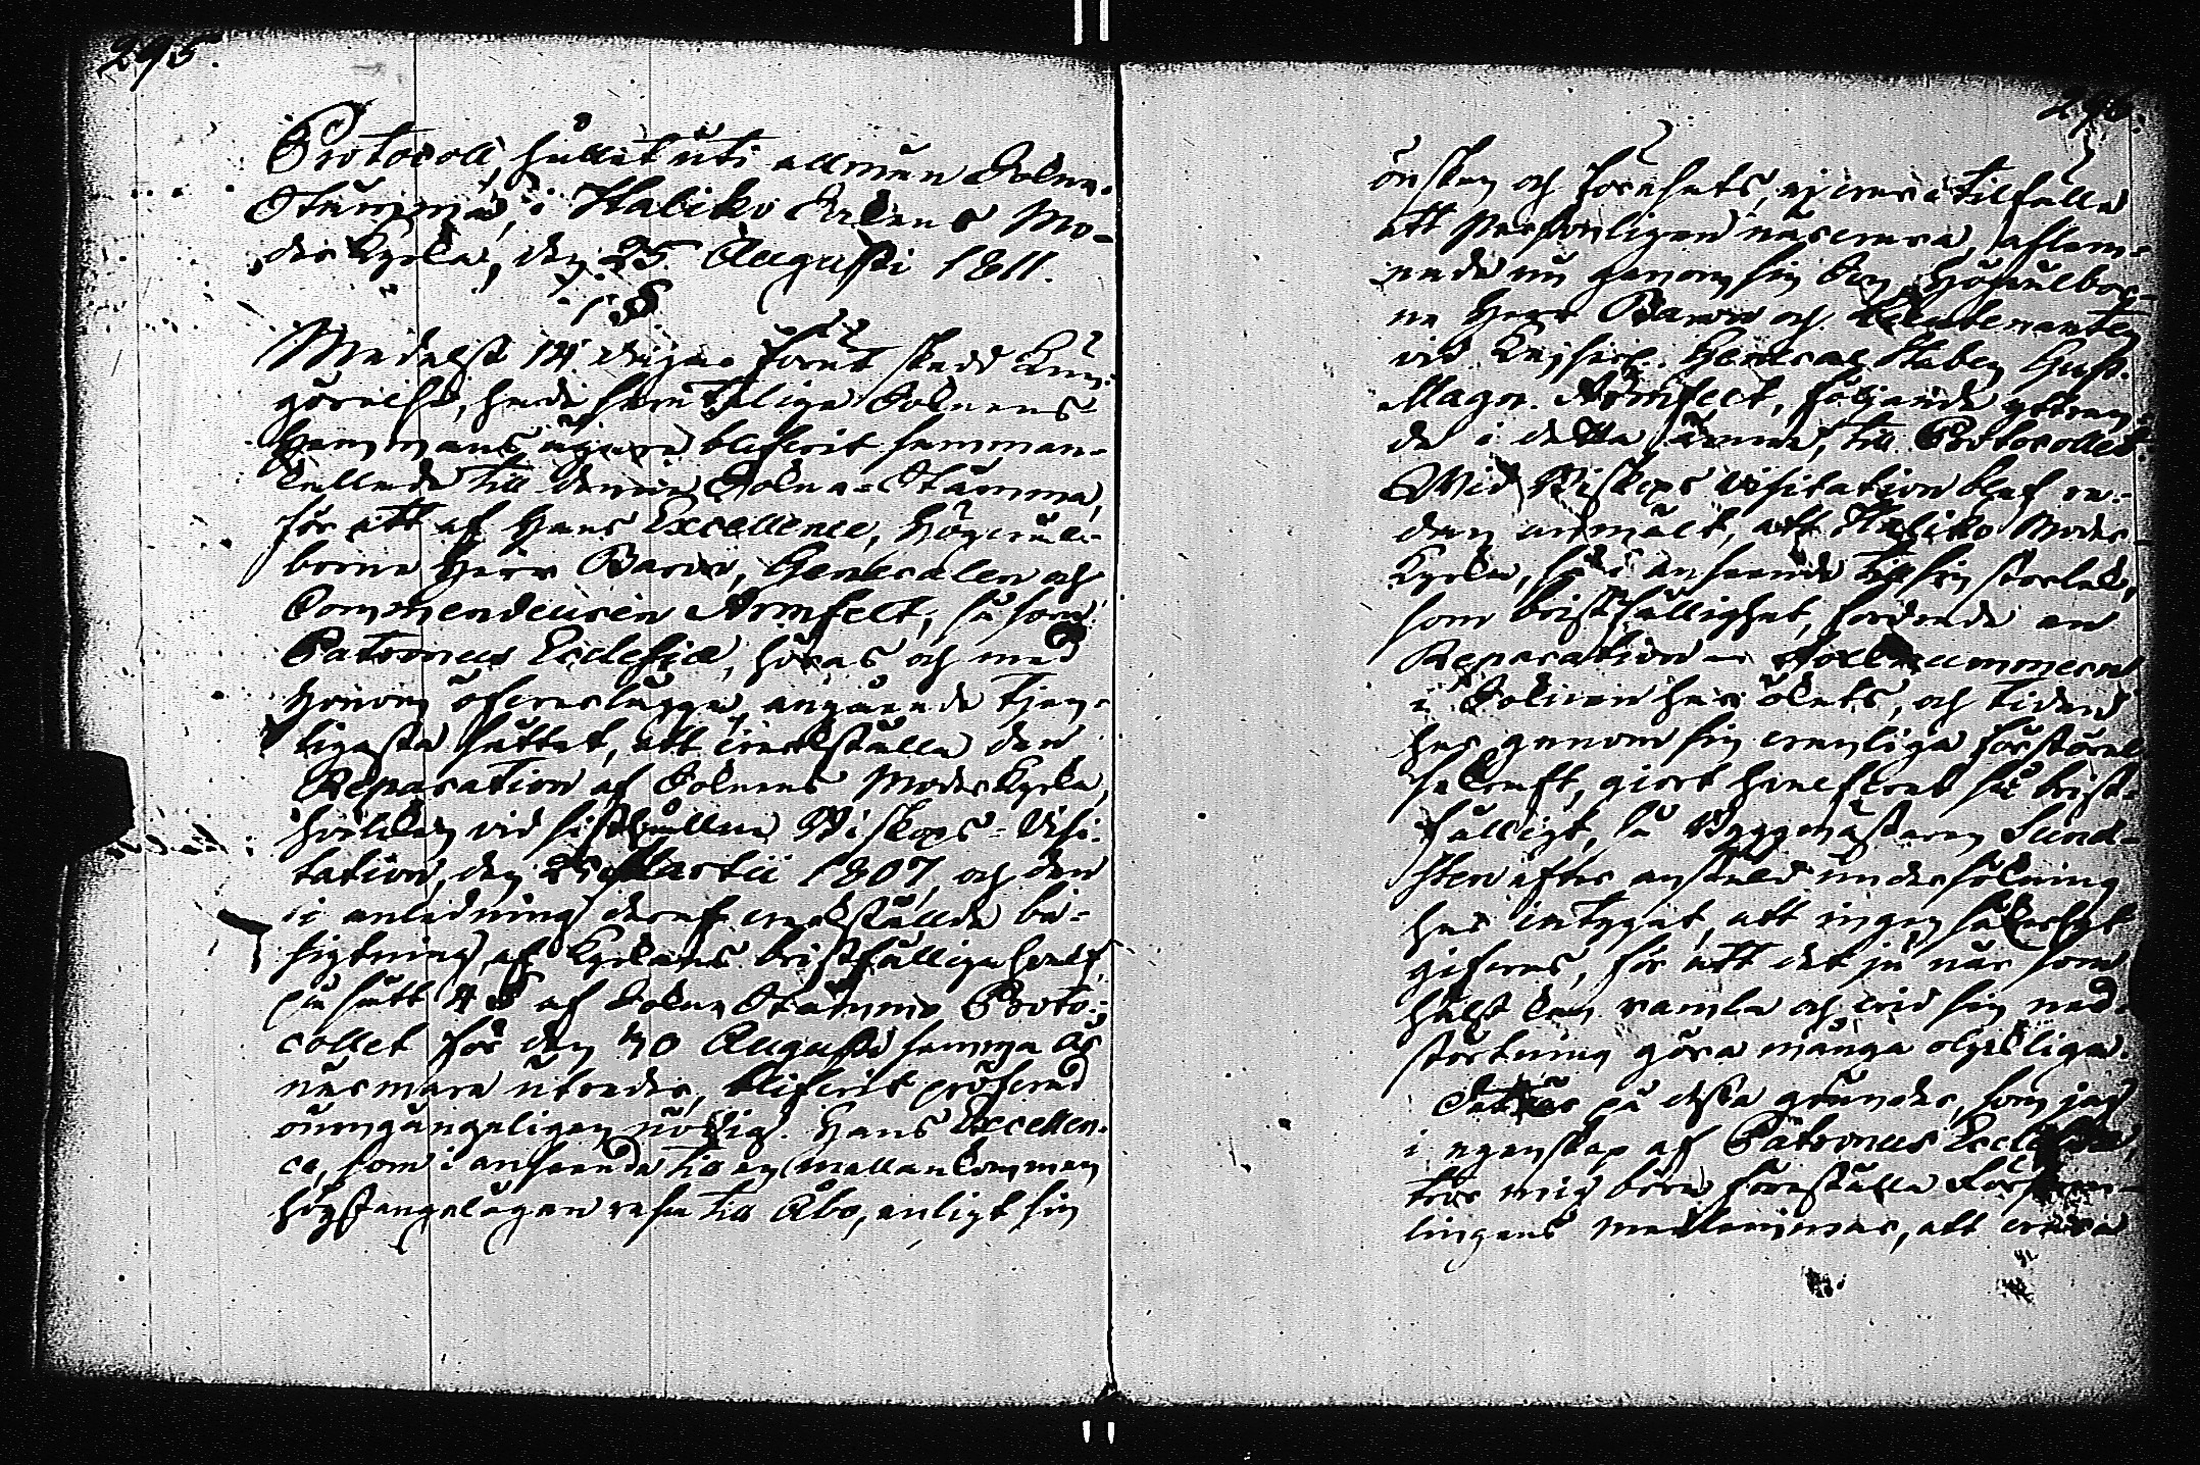 295.
Protocoll hållit uti allmän Sokne-
Stämma, i Haliko Sokens Mo-
der Kyrka, den 25 Augusti 1811.
1 §
Medelst 14 dagar förut skedd Kun-
görelse, hade samtelige Soknens
Hemmans ägare blifvit samman-
kallade till denna Sokne-Stämma,
för att af Hans Excellence, Högväl-
borne Herr Baron, Generalen och
Commendeuren Armfelt, så som
Patronus Ecclesiæ, höras och med
honom öfverlägga, angående tjen-
ligaste sättet, att verkställa den
Reparation af Soknens Moderkyrka,
hvilken vid sisthållne Biskops-Visi-
tation, den Martii 1807, och den
i anledning deraf verkställde be-
sigtning af Kyrkans bristfällighet,
på sätt 4 § af Sokne Stämmo Proto-
collet för den 30 Augusti samma år
närmare utreder, blifvit pröfvad
oumgängeligen nödig. Hans Excellen-
ce, som i anseende till en mellankommen
högstangelägen resa till Åbo, enligt sin
296.
önskan och föresats, ej vore i tilfälle
att personligen närvara, aflem-
nade nu genom sin Son, Högvälbor-
ne Herr Baron och Lieutenanten
vid Kejserl. General Staben Gust.
Magn. Armfelt, följande yttran-
de i detta ämne, till Protocollet.
Wid Biskops Visitation blef re-
dan anmält, att Haliko Moder-
Kyrka, så i anseende till sin storlek,
som bristfällighet, fordrade en
Reparation – Folknummern
i Soknen har ökats, och tiden
har genom sin vanliga förstörel-
sekraft, gjort hvalfvet så brist-
fälligt, så Byggmästaren Lind-
sten efter anstäld undersökning
har intygat, att ingen säkerhet
gifves, för att det ju när som
hälst kan ramla och vid sin ned-
störtning göra många olyckliga.
Det är på dessa grunder, som jag
i egenskap af Patronus Ecclesiæ,
tror mig böra föreställa Församm-
lingens medlemmar, att